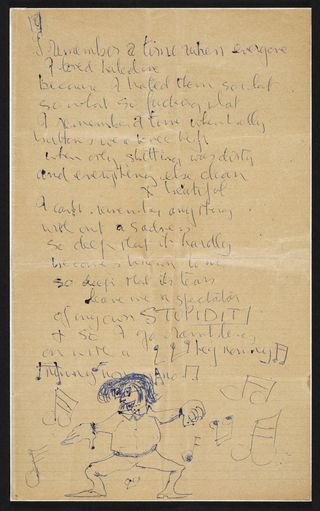 I remember a time when everyone
I loved hated me
Because I hated them so what
so what so fucking what
I remember a time when belly
buttons were knee high
when only shitting was dirty
and everything else clean
& beautiful
I can't remember anything
without a sadness
So deep that it hardly
becomes known to me
so deep that its tears
leave me a spectator
of my own STUPIDITY
& so I go rambling
on with a hey nonny
nonny